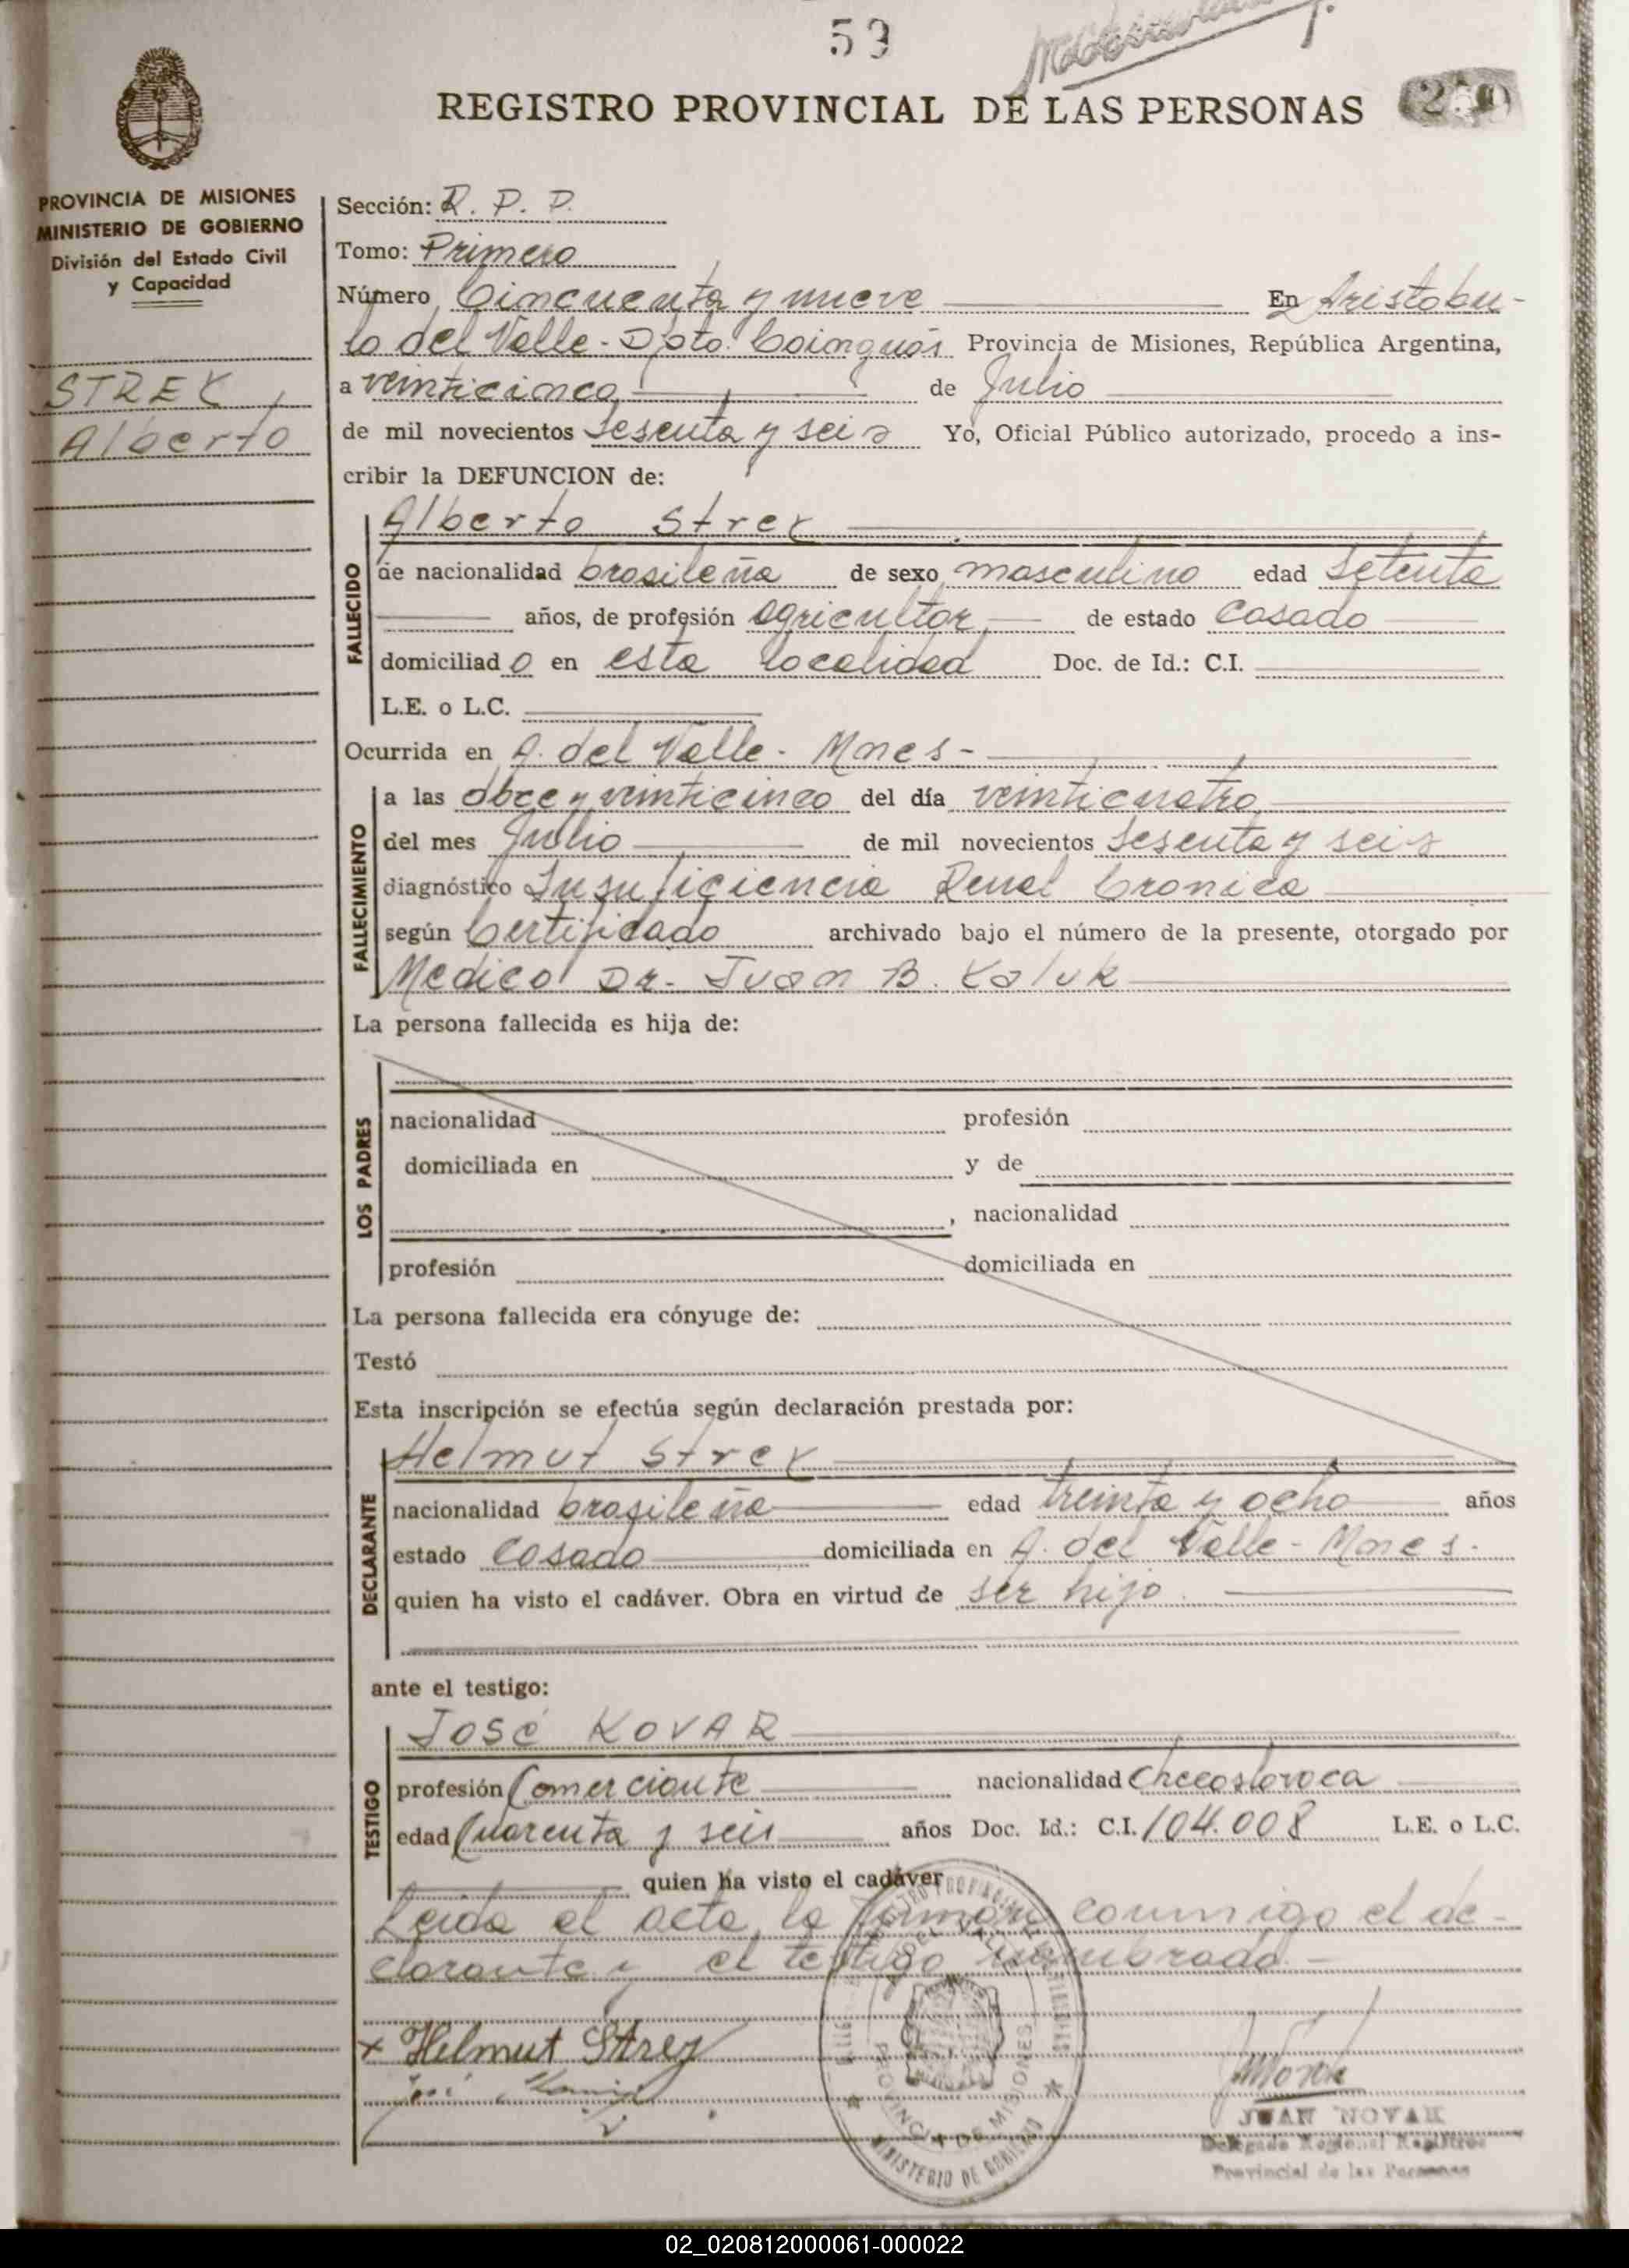 59
REGISTRO PROVINCIAL DE LAS PERSONAS
PROVINCIA DE MISIONES
MINISTERIO DE GOBIERNO
División del Estado Civil
y Capacidad
STREK
Alberto
Sección: R. P. P.
Tomo: Primero
Número Cincuenta y nueve En Aristobu-
lo del Valle - Dpto. Cainguás Provincia de Misiones, República Argentina,
a veinticinco de Julio
de mil novecientos Sesenta y seis Yo, Oficial Público autorizado, procedo a ins-
cribir la DEFUNCION de:
Alberto Strek
FALLECIDO
de nacionalidad brasileña de sexo masculino edad Setenta
años, de profesión agricultor de estado Casado
domiciliado en esta localidad Doc. de Id.: C.I.
L.E. o L.C.
Ocurrida en A. del Valle - Mnes -
FALLECIMIENTO
a las doce y veinticinco del día veinticuatro
del mes Julio de mil novecientos Sesenta y seis
diagnóstico Insuficiencia Renal Cronica
según Certificado archivado bajo el número de la presente, otorgado por
Medico Dr. Juan B. Kaluk
La persona fallecida es hija de:
LOS PADRES
nacionalidad profesión
domiciliada en y de
, nacionalidad
profesión domiciliada en
La persona fallecida era cónyuge de:
Testó
Esta inscripción se efectúa según declaración prestada por:
Helmut Strek
DECLARANTE
nacionalidad brasileña edad treinta y ocho años
estado Casado domiciliada en A. del Valle - Mnes.
quien ha visto el cadáver. Obra en virtud de ser hijo
ante el testigo:
José KOVAR
TESTIGO
profesión Comerciante nacionalidad Checoslovaca
edad Cuarenta y seis años Doc. Id.: C.I. 104.008 L.E. o L.C.
quien ha visto el cadáver
Leida el acta, la firman conmigo el de-
clarante y el testigo nombrado.-
x Helmut Strey
PROVINCIA DE MISIONES
MINISTERIO DE GOBIERNO
JUAN NOVAK
Delegado Regional Registro
Provincial de las Personas
02_020812000061-000022